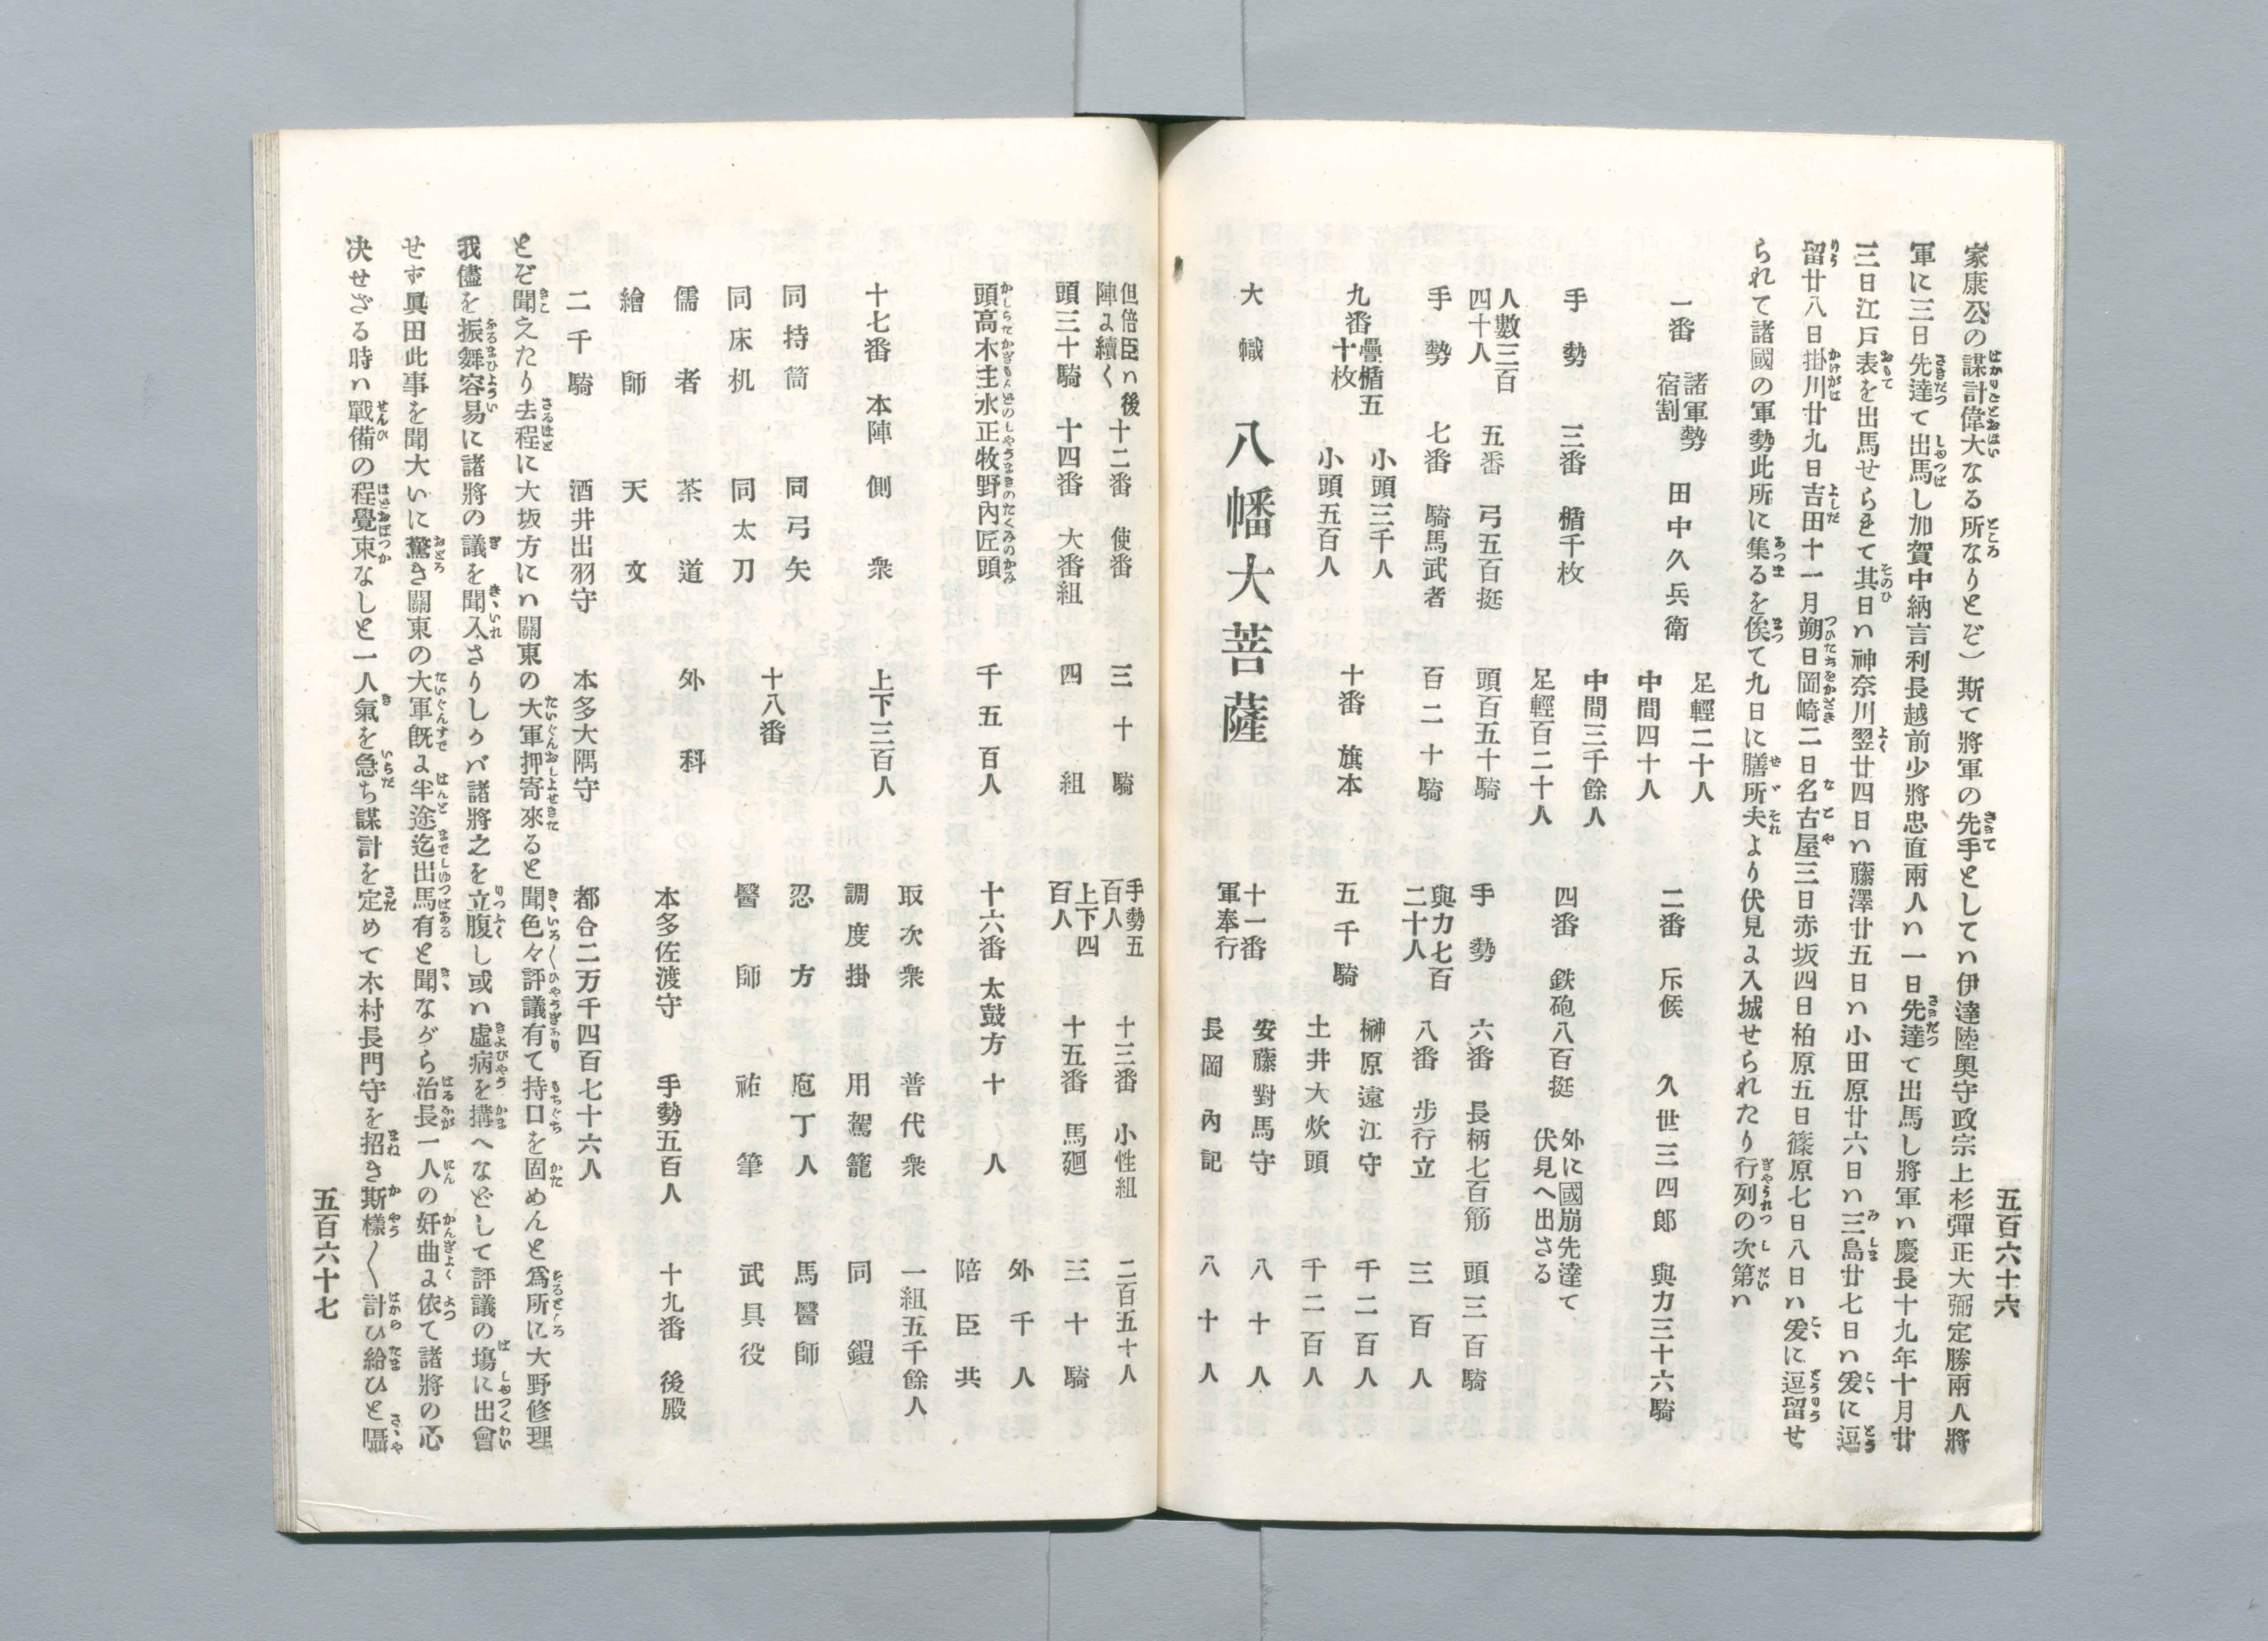 五百六十六
家康公の謀計偉大なる所なりとぞ）斯て將軍の先手としてハ伊達陸奧守政宗上杉彈正大弼定勝兩人將
軍に三日先達て出馬し加賀中納言利長越前少將忠直兩人ハ一日先達て出馬し將軍ハ慶長十九年十月廿
三日江戸表を出馬せらきて其日ハ神奈川翌廿四日ハ藤澤廿五日ハ小田原廿六日ハ三島廿七日ハ爰に逗
留廿八日掛川廿九日吉田十一月朔日岡崎二日名古屋三日赤坂四日柏原五日篠原七日八日ハ爰に逗留せ
られて諸國の軍勢此所に集るを俟て九日に膳所夫より伏見よ入城せられたり行列の次第ハ
一番　諸軍勢宿割　田中久兵衛　足輕二十人　中間四十人　二番　斥候　久世三四郎　與力三十六騎
手勢　三番　楯千枚　中間三千餘人　足輕百二十人　四番　鉄砲八百挺　外に國崩先達て伏見へ出さる
人數三百四十人　五番　弓五百挺　頭百五十騎　手勢　六番　長柄七百筋　頭三百騎
手勢　七番　騎馬武者　百二十騎　與力七百二十人　八番　步行立　三百人
九番　疊楯五十枚　小頭三千人　小頭五百人　十番　旗本　五千騎　榊原遠江守　千二百人　土井大炊頭　千二百人
大幟　八幡大菩薩　十一番　軍奉行　安藤對馬守　八十人　長岡內記　八十人
但倍臣ハ後陣よ續く　十二番　使番　三十騎　手勢五百人　十三番　小性組　二百五十人
頭三十騎　十四番　大番組　四組　上下四百人　十五番　馬廻　三十騎
頭高木主水正牧野內匠頭　千五百人　十六番　太鼓方十人　外千人　陪臣共
十七番　本陣側衆　上下三百人　取次衆　普代衆　一組五千餘人
調度掛　用駕籠　同鎧
同持筒　同弓矢　十八番　忍方　庖丁人　馬醫師
同床机　同太刀　醫師　祐筆　武具役
儒者　茶道　外科　本多佐渡守　手勢五百人　十九番　後殿
繪師　天文
二千騎　酒井出羽守　本多大隅守　都合二万千四百七十六人
とぞ聞えたり去程に大坂方にハ關東の大軍押寄來ると聞色々評議有て持口を固めんと爲所に大野修理
我儘を振舞容易に諸將の議を聞入さりしうバ諸將之を立腹し或ハ虛病を搆へなどして評議の塲に出會
せず眞田此事を聞大いに驚き關東の大軍旣よ半途迄出馬有と聞ながら治長一人の奸曲よ依て諸將の心
决せざる時ハ戰備の程覺束なしと一人氣を急ち謀計を定めて木村長門守を招き斯樣〱計ひ給ひと囁
五百六十七